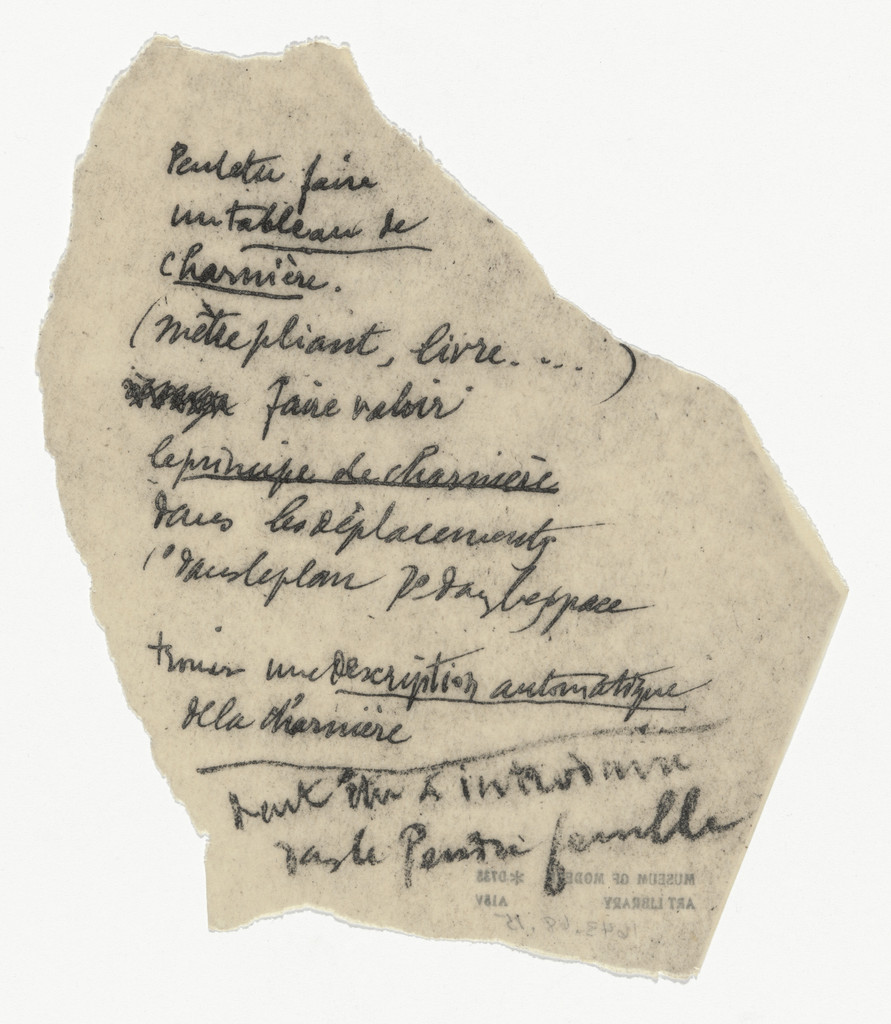 Peut etre faire
un tableau de
charnière.
(mètre pliant, livre. ...)
faire valoir
le principe de charnière
dans les déplacements
1º dans le plan 2º dans l'espace
trouver une description automatique
de la charnière
peut être à introduire
dans le Pendu femelle
MUSEUM OF MODE *D735
ART LIBRARY A15V
643.48.15